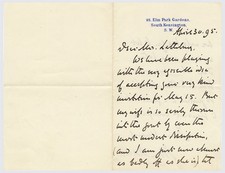 Elm Park Gardens
South Kensington
S.W.
April 30. 95.
Dear Mrs.
We have been playing
with the very agreeable idea
of accepting your very kind
invitation for May 15. But
my wife is so sorely thrown
out the gout by even the
most modest
(and I am just now almost
as badly off as she is) that